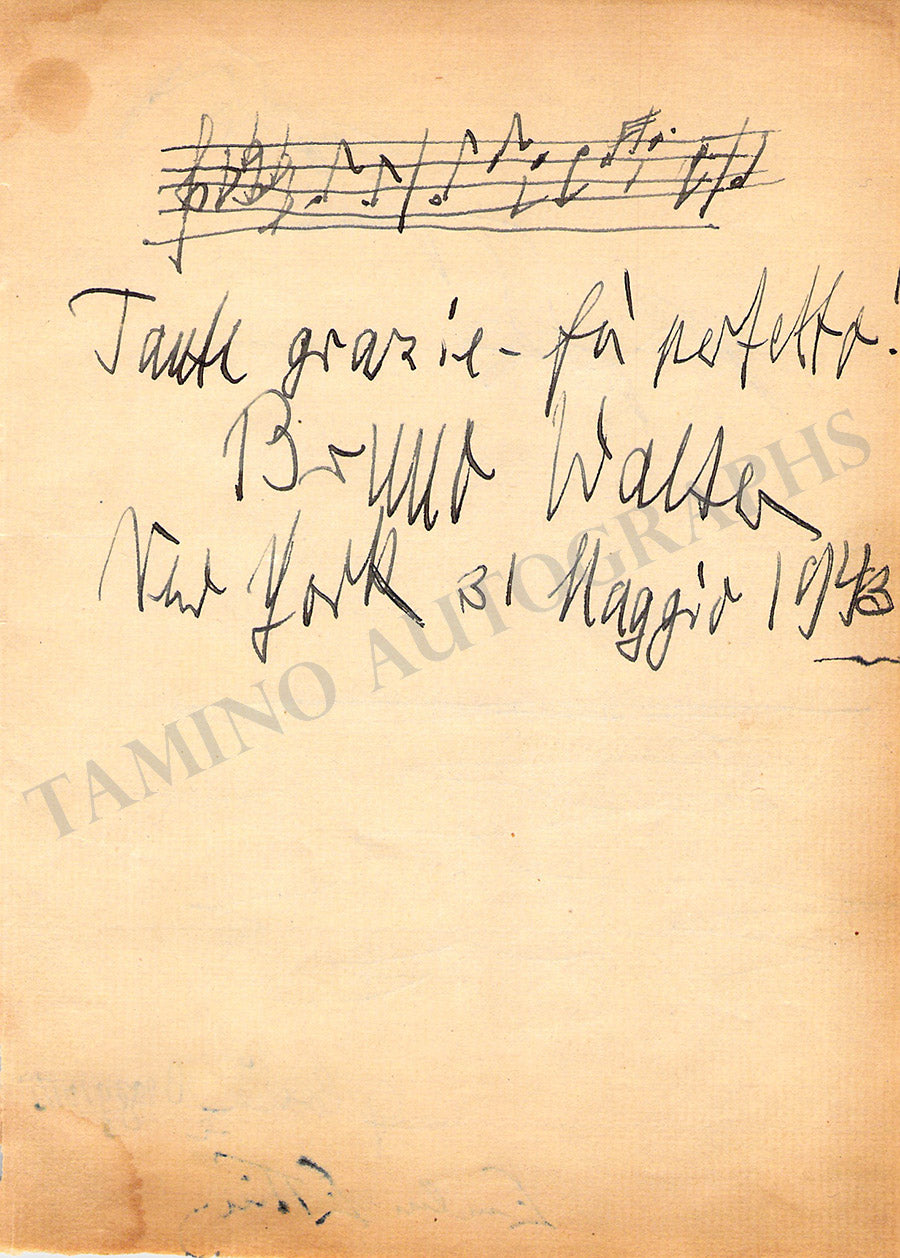 Tante grazie - fù perfetto!
Bruno Walter
New York 31 Maggio 1943
TAMINO AUTOGRAPHS